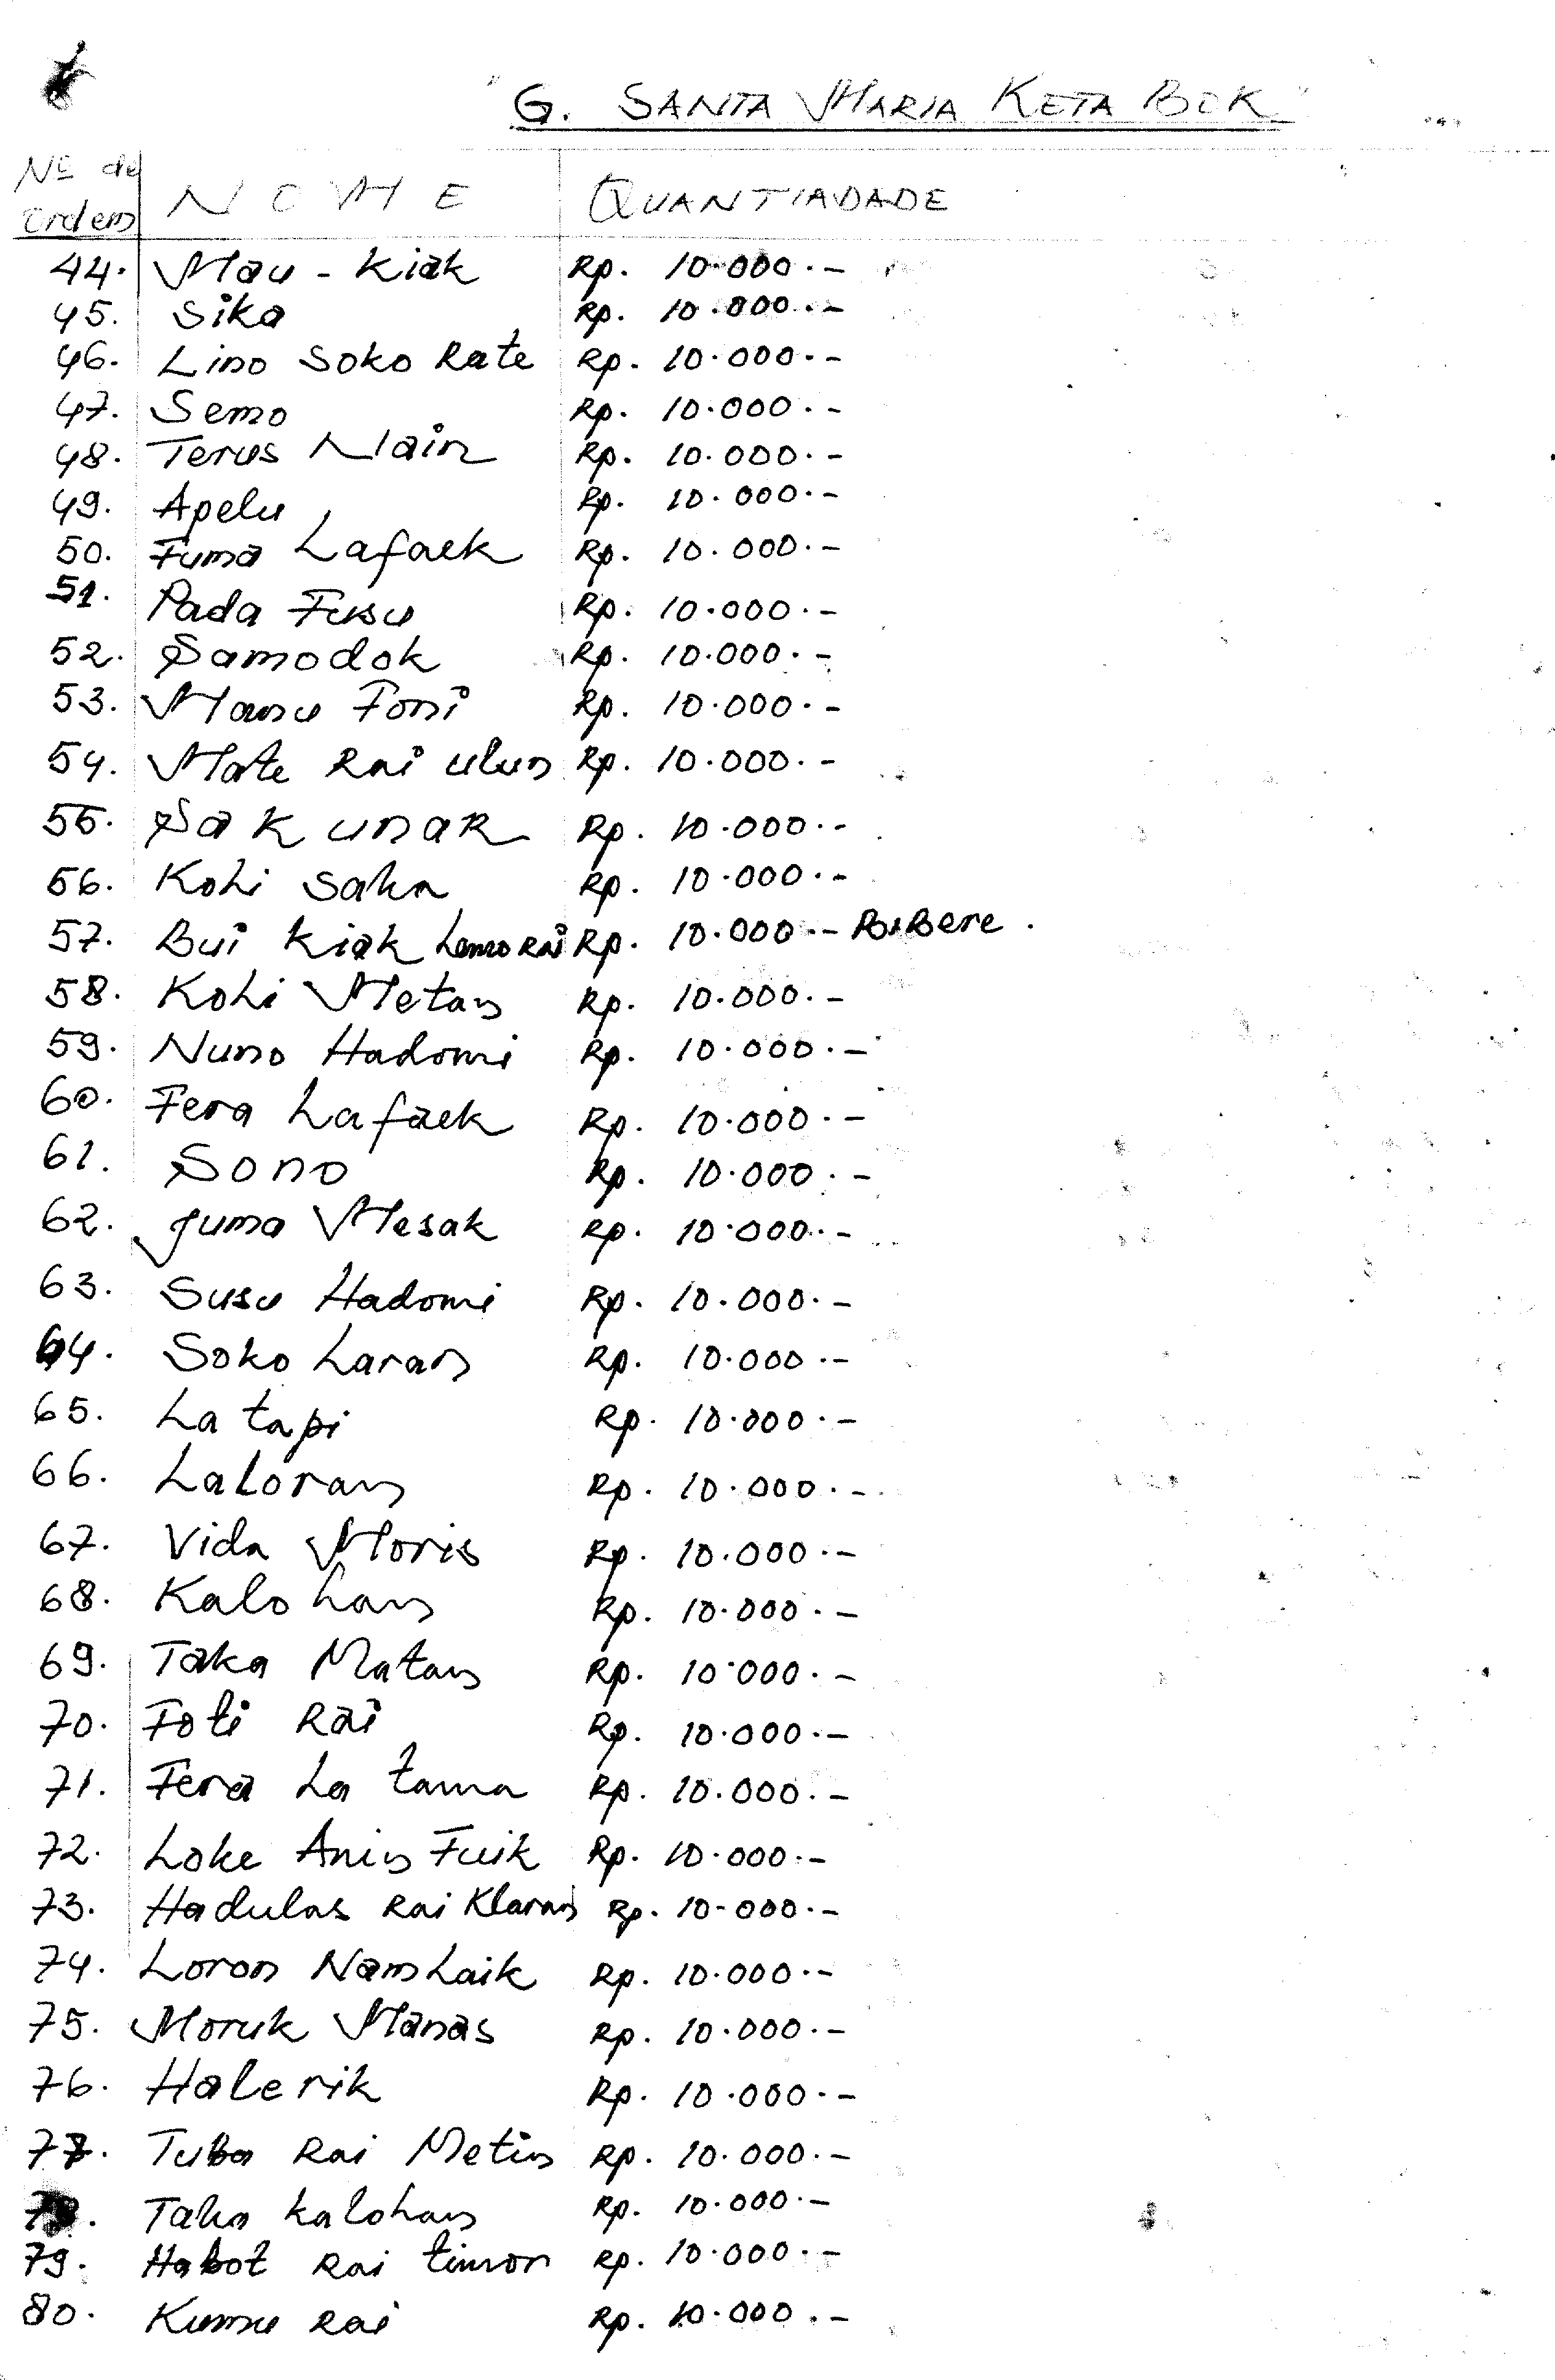 "G. SANTA MARIA KETA BOK"
Nº de Ordem NOME QUANTIADADE
44. Mau - Kiak Rp. 10.000.-
45. Sika Rp. 10.000.-
46. Lino Soko Rate Rp. 10.000.-
47. Semo Rp. 10.000.-
48. Terus Nain Rp. 10.000.-
49. Apelu Rp. 10.000.-
50. Fuma Lafaek Rp. 10.000.-
51. Pada Fusu Rp. 10.000.-
52. Samodok Rp. 10.000.-
53. Manu Foni Rp. 10.000.-
54. Mate Rai ulun Rp. 10.000.-
55. Sakunar Rp. 10.000.-
56. Kohi Saha Rp. 10.000.-
57. Bui Kiak Lemo Rai Rp. 10.000.- BiBere.
58. Kohi Metan Rp. 10.000.-
59. Nuno Hadomi Rp. 10.000.-
60. Fera Lafaek Rp. 10.000.-
61. Sono Rp. 10.000.-
62. Juma Mesak Rp. 10.000.-
63. Susu Hadomi Rp. 10.000.-
64. Soko Laran Rp. 10.000.-
65. La tapi Rp. 10.000.-
66. Laloran Rp. 10.000.-
67. Vida Moris Rp. 10.000.-
68. Kalohan Rp. 10.000.-
69. Taka Matan Rp. 10.000.-
70. Foti Rai Rp. 10.000.-
71. Fera La tama Rp. 10.000.-
72. Loke Anin Fuik Rp. 10.000.-
73. Hadulas Rai Klaran Rp. 10.000.-
74. Loron Nam Laik Rp. 10.000.-
75. Moruk Manas Rp. 10.000.-
76. Halerik Rp. 10.000.-
77. Tuba Rai Metin Rp. 10.000.-
78. Taha kalohan Rp. 10.000.-
79. Habot Rai timor Rp. 10.000.-
80. Kumu Rai Rp. 10.000.-